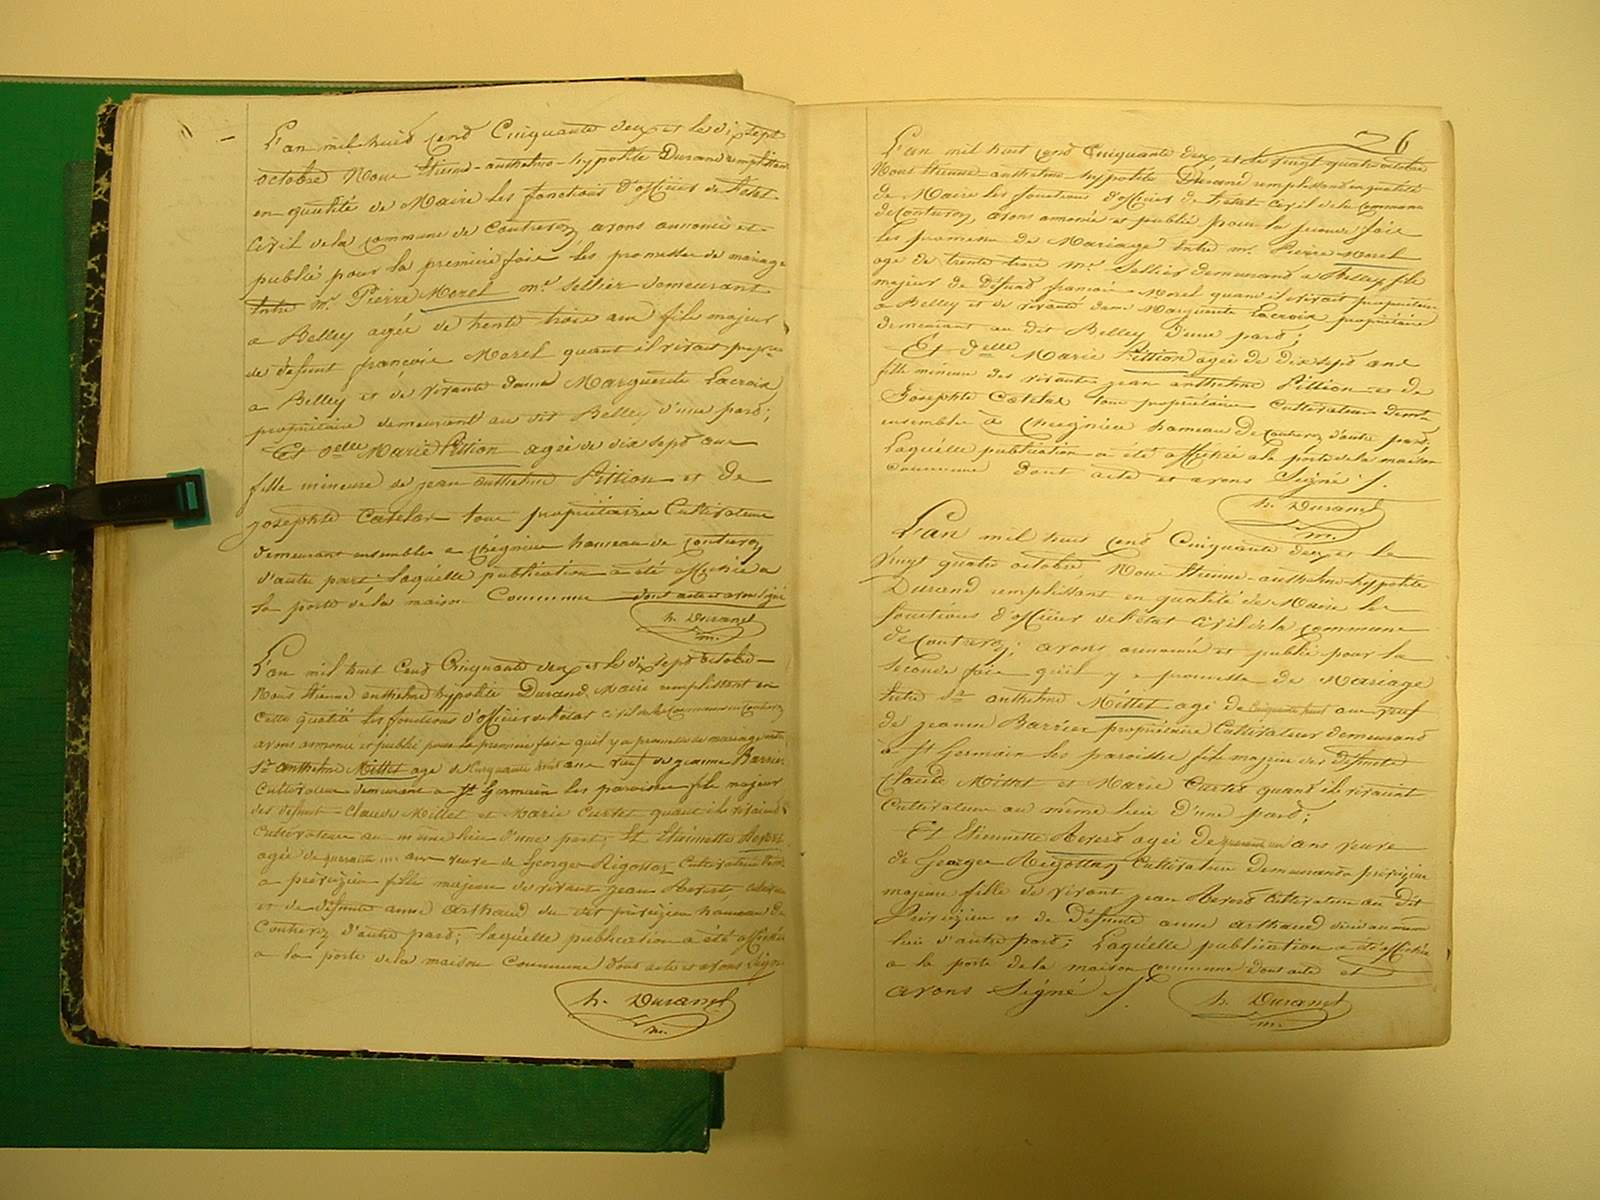 L'an mil huit cent Cinquante deux et le dix sept
octobre Nous Etienne-anthelme-hypolite Durand remplissant
en qualité de Maire les fonctions d'officier de l'état
Civil de la Commune de Contrevoz avons annoncé et
publié pour la premiere fois les promesse de mariage
Entre Mr. Pierre Morel md. sellier demeurant
a Belley agée de trente trois ans fils majeur
de défunt françois Morel quant il vivait propre
a Belley et de vivante dame Marguerite Lacroix
propriétaire demeurant au dit Belley d'une part;
Et Delle Marie Pittion agée de dix sept ans
fille mineure de jean anthelme Pittion et de
josephte Catelar tous propriétaires Cultivateurs
demeurant ensembles a Cheignieu hameau de Contrevoz
d'autre part. laquelle publication a été affichée a
la porte de la maison Commune dont acte et avons signé
h. Durand
m.
L'an mil huit Cent Cinquante deux et le dix sept octobre
Nous Etienne anthelme hypolite Durand, Maire remplissant en
Cette qualité les fonctions d'officier de l'état civil de la Commune de Contrevoz
avons annoncé et publié pour la premiere fois qu'il y a promesse de mariage entre
Sr. anthelme Mittet age de Cinquante huit ans veuf de jeanne Barrier
Cultivateur demeurant a St Germain les paroisses fils majeur
des défunt Claude Mittet et Marie Curtet quant ils vivaient
Cultivateurs au même lieu d'une part; Et Etiennette Revert
agée de quarante un ans veuve de George Rigottaz Cultivateur
a preveyzieu fille majeure de vivant jean Revert,
et de défunte anne arthaud du dit preveyzieu hameau de
Contrevoz d'autre part; laquelle publication a été affichée
a la porte de la maison Commune dont acte et avons Signé
h. Durand
m.
26
L'an mil huit cent Cinquante deux et le vingt quatre octobre
Nous Etienne-anthelme-hypolite Durand remplissant en qualité
de Maire les fonctions d'officier de l'état Civil de la Commune
de Contrevoz, avons annoncé et publié pour la seconde fois
les promesse de Mariage Entre mr. Pierre Morel
age de trente trois md. Sellier demeurand a Belley fils
majeur de défunt françois Morel quant il vivait propriétaire
a Belley et de vivante dame Marguerite Lacroix propriétaire
demeurant au dit Belley D'une part;
Et Delle Marie Pittion agée de dix sept ans
fille mineure des vivants jean anthelme Pittion et de
Josephte Catelar tous propriétaires Cultivateurs
ensembles à Cheignieu hameau de Contrevoz d'autre part.
Laquelle publication a été affichée a la porte de la maison
Commune dont acte et avons Signé /.
h. Durand
m.
L'an mil huit cent Cinquante deux et le
Vingt quatre octobre Nous Etienne-anthelme-hypolite
Durand remplissant en qualité de Maire les
fonctions d'officier de l'état civil de la commune
de Contrevoz; avons annoncé et publié pour la
seconde fois qu'il y a promesse de Mariage
Entre Sr. anthelme Mittet agé de Cinquante huit ans veuf
de jeanne Barrier propriétaire Cultivateur demeurand
à St Germain les paroisses fils majeur des défunts
Claude Mittet et Marie Curtet quand ils vivaient
Cultivateurs au même lieu D'une part;
Et Etiennette Revert agée De quarante un ans veuve
de George Rigottaz Cultivateur Demeurant a preveyzieu
majeure fille de vivant jean Revert Cultivateur au dit
Preveyzieu et de Défunte anne arthaud au même
lieu d'autre part; Laquelle publication a été affichée
a la porte de la maison commune dont acte et
avons Signé /.
h. Durand
m.